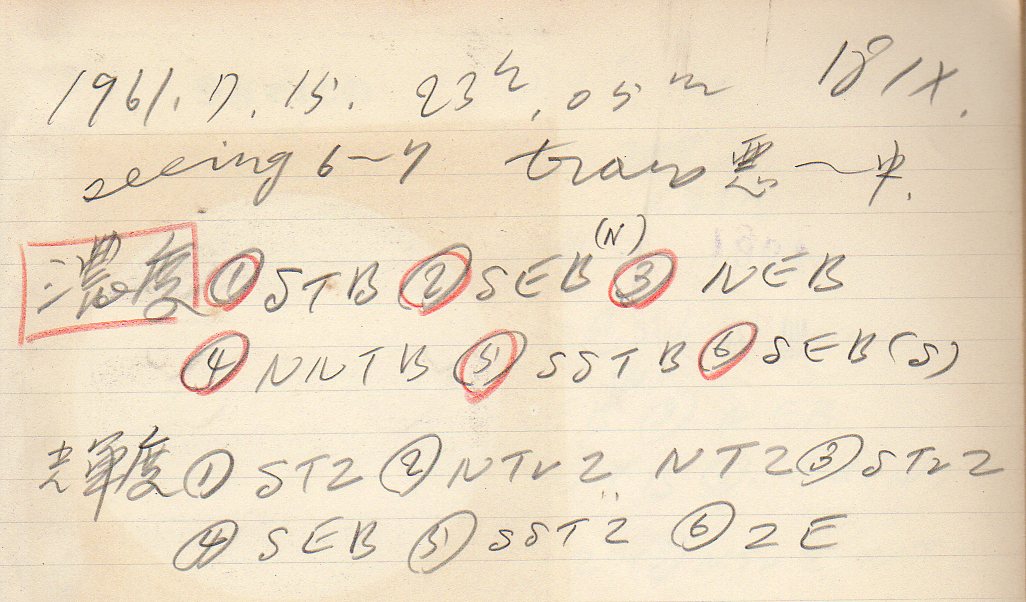 1961. 7. 15. 23h. 05m 181x.
seeing 6~7 trans 悪~中.
濃度 ① STB ② SEB(N) ③ NEB
④ NNTB ⑤ SSTB ⑥ SEB(S)
輝度 ① STZ ② NTrZ NTZ ③ STrZ
④ SEB ⑤ SSTZ ⑥ ZE